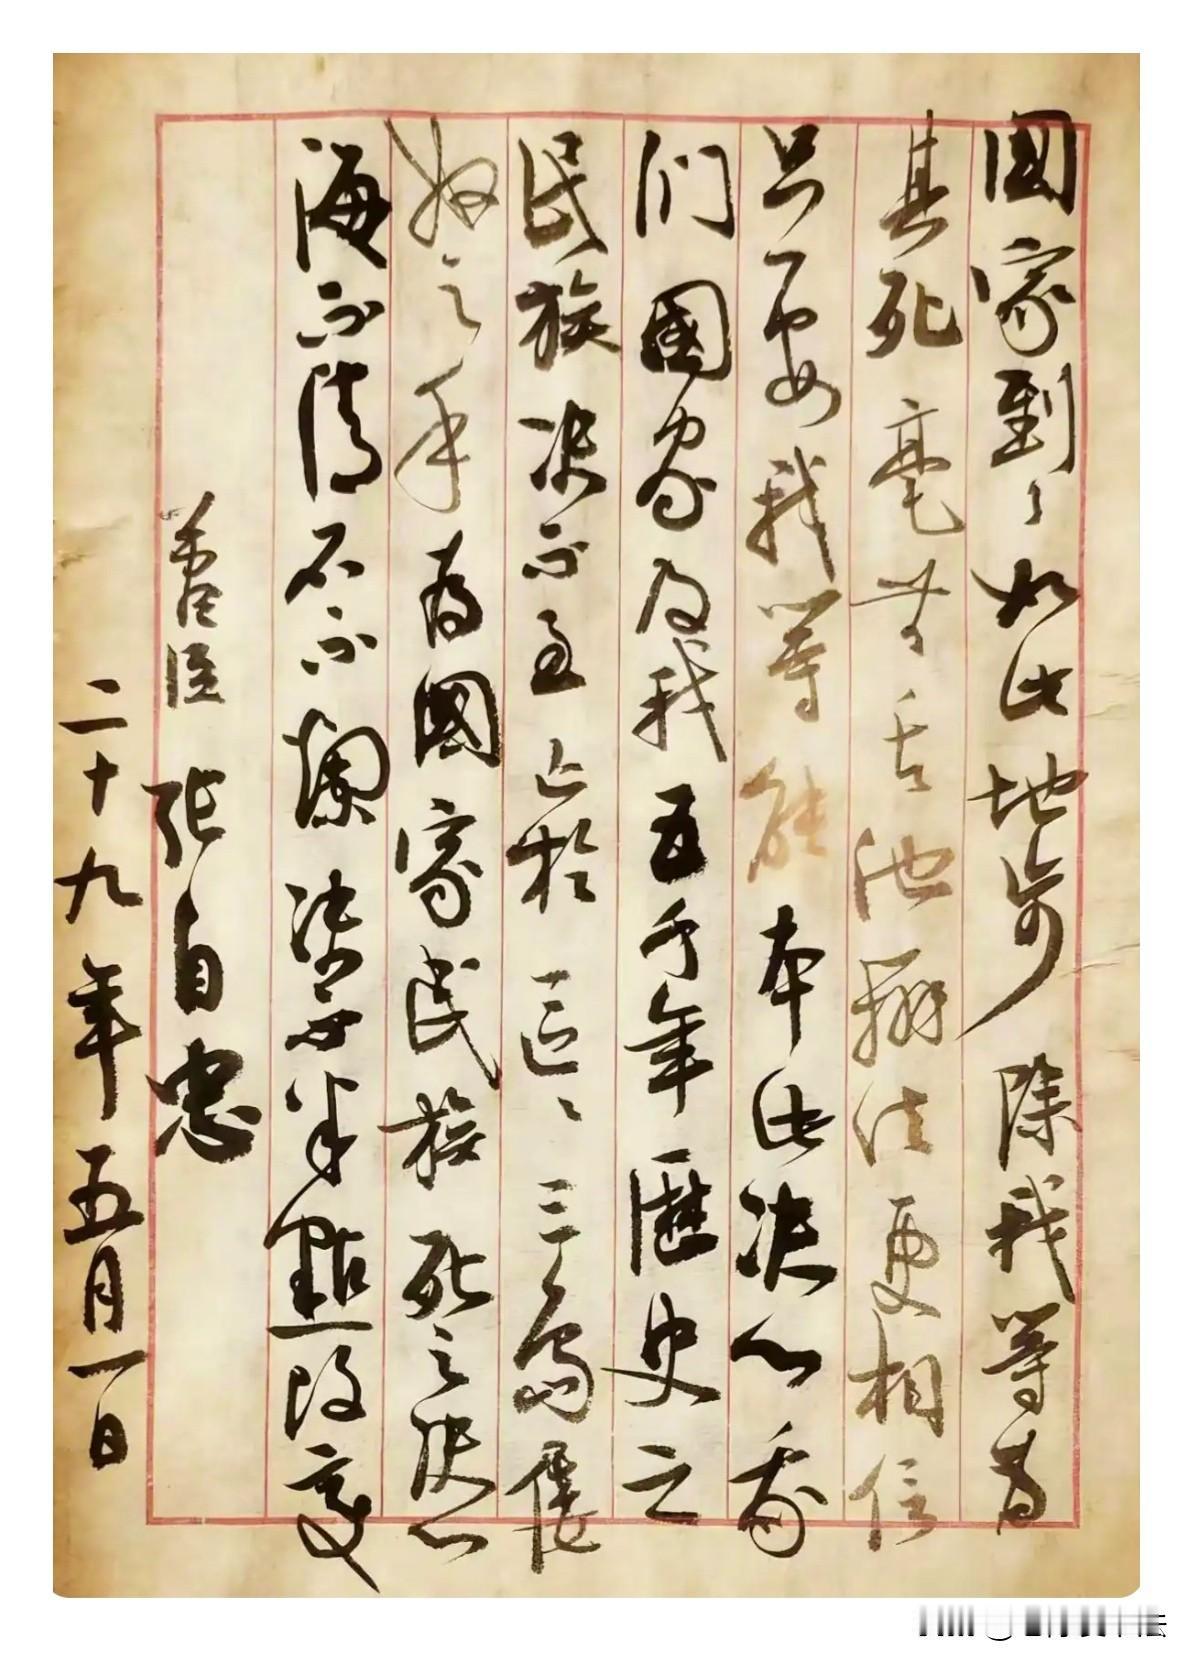 國家到了如此地步除我等為
其死毫無其他辦法更相信
只要我等能本此决心我
们國家及我五千年歷史之
民族决不至亡於區々三島倭
奴之手為國家民族死之决心
海不清石不爛决不半點改變
張自忠
二十九年五月一日